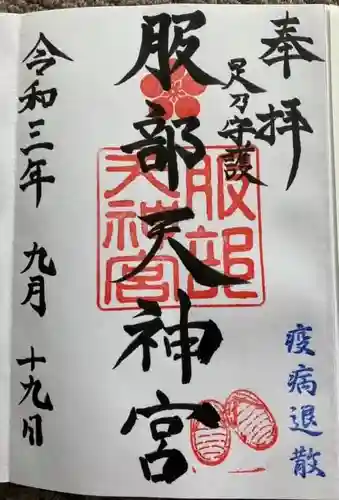 奉拝
足乃守護
服部天神宮
令和三年 九月 十九日
疫病退散
服部
天神宮